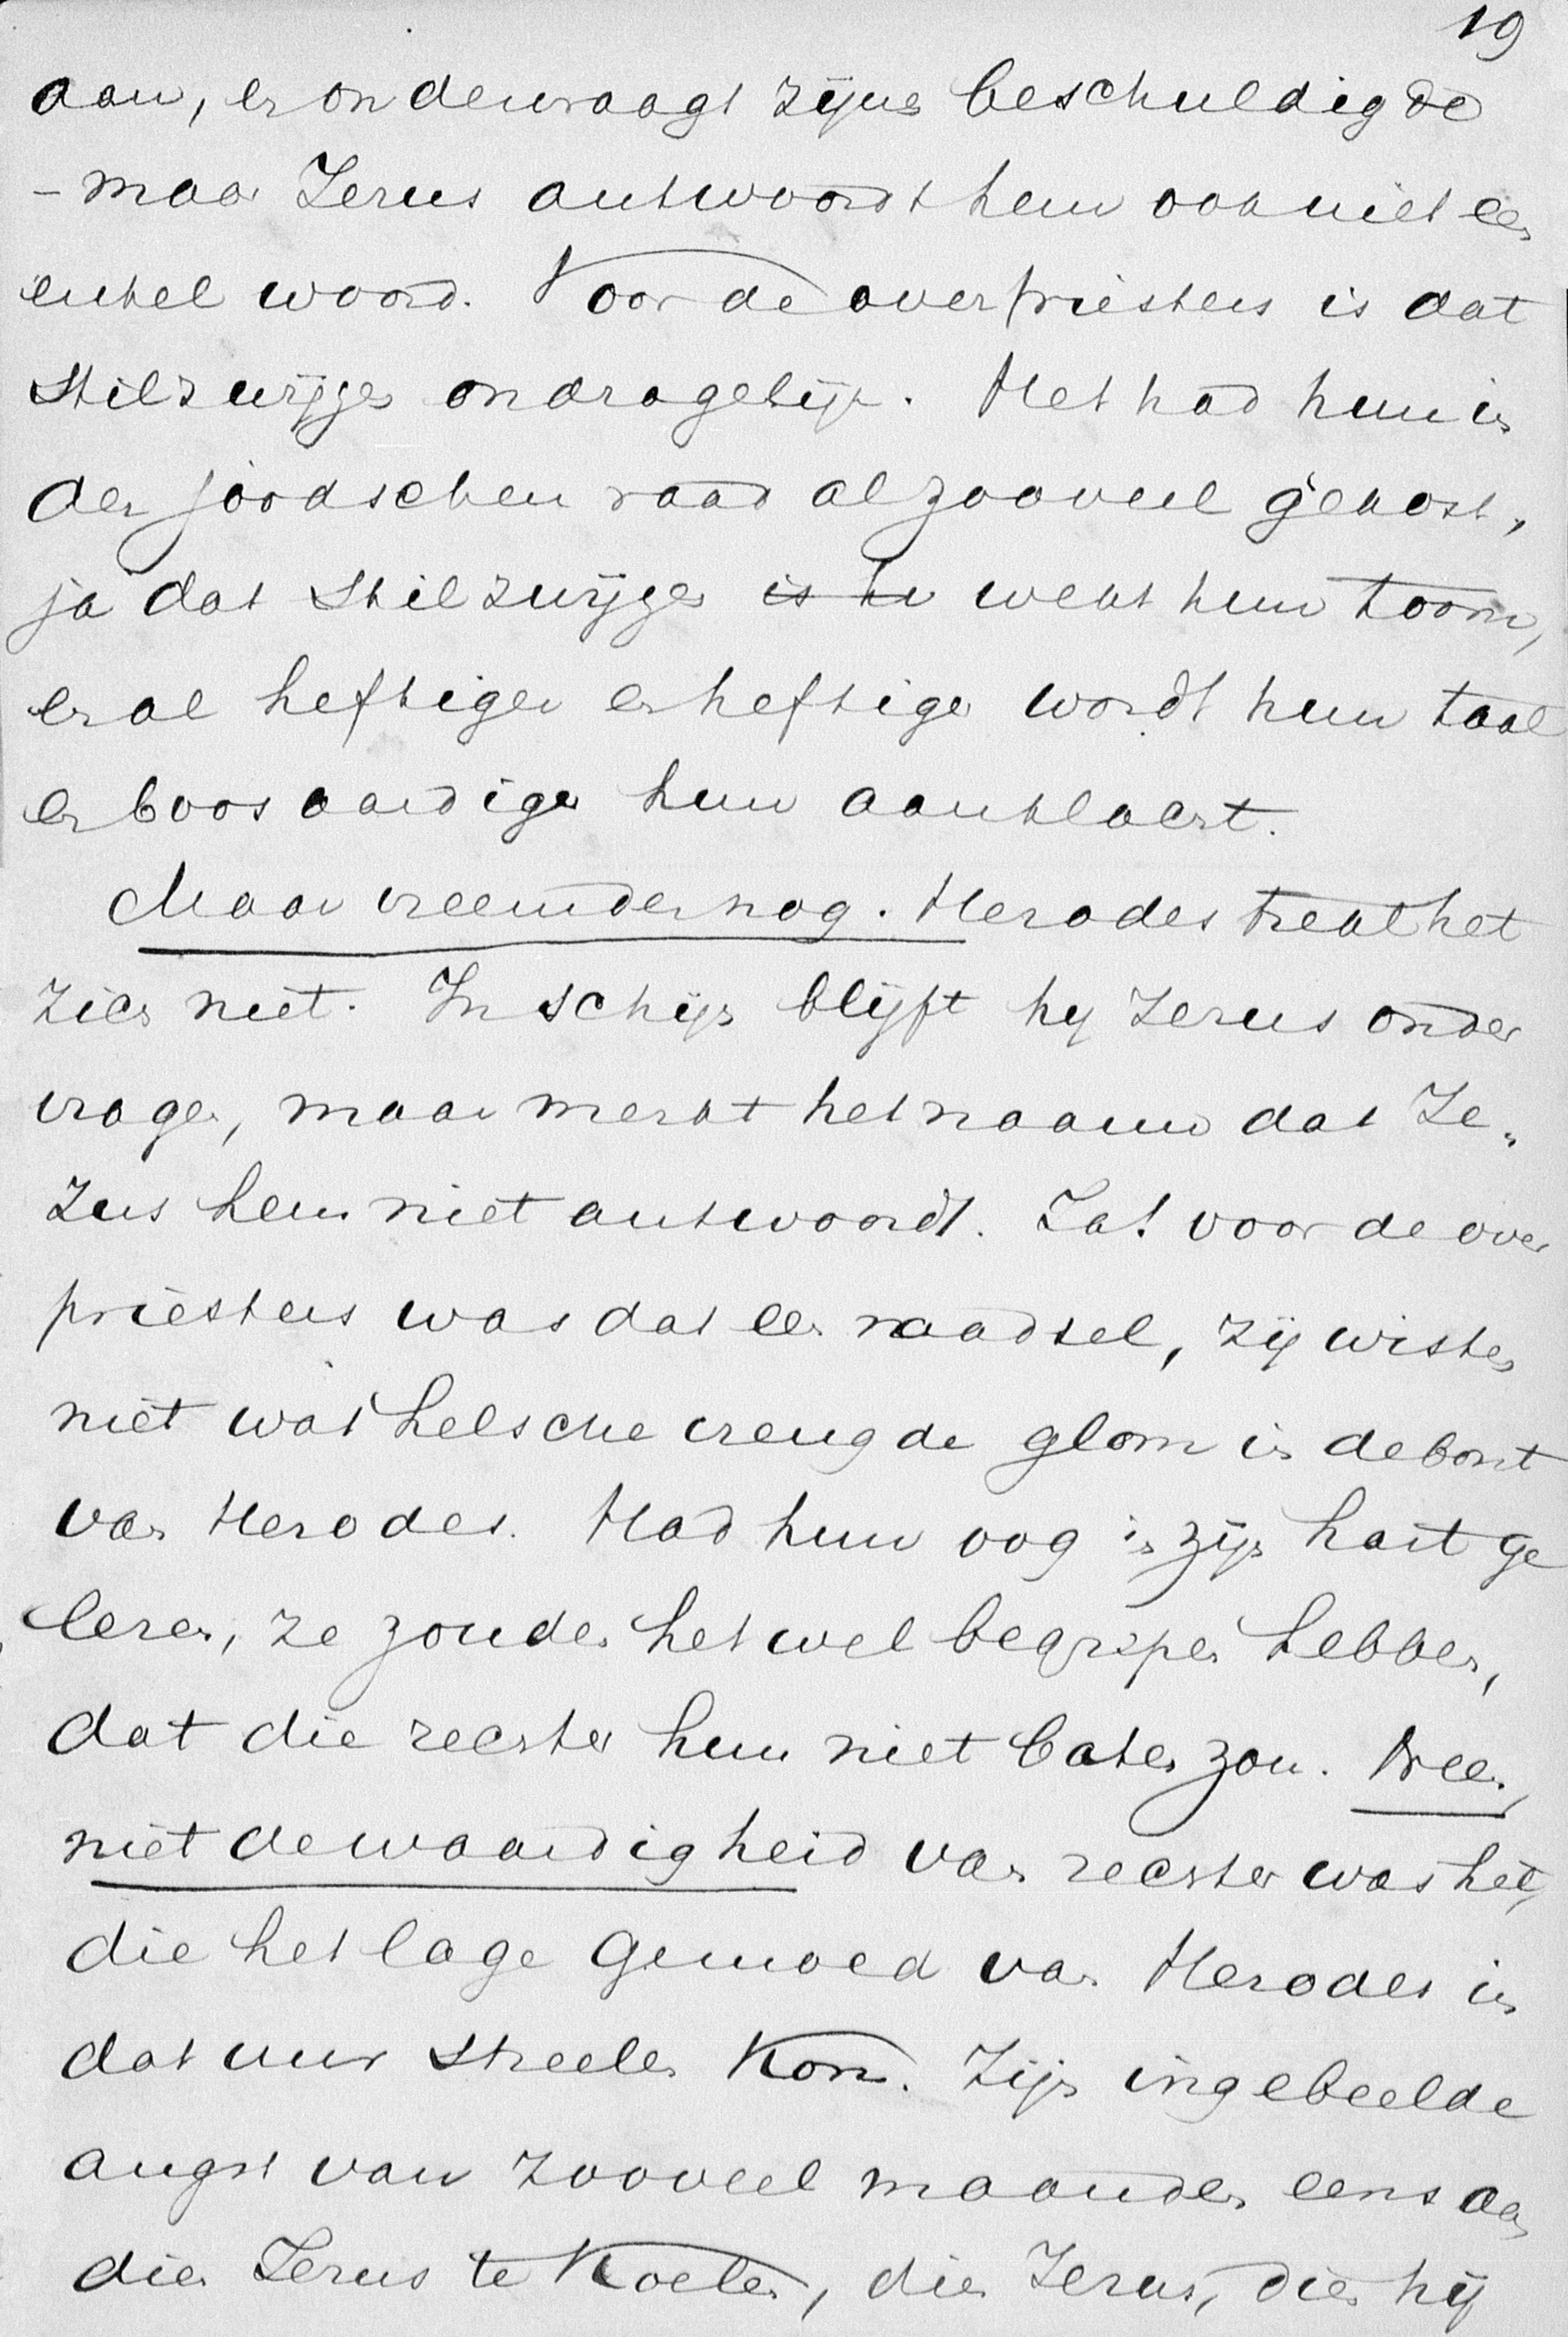 19
aan, en ondervraagt zijne beschuldigde
- maar Jezus antwoordt hem ook niet een
enkel woord. Voor de overpriesters is dat
stilzwijgen ondragelijk. Het had hun in
den joodschen raad al zooveel gekost,
ja dat stilzwijgen is hu wekt hun toorn,
en al heftiger en heftiger wordt hun taal
en boosaardiger hun aanklacht.
Maar vreemder nog. Herodes trekt het
zich niet. In schijn blijft hij Jezus onder
vragen, maar merkt het naauw dat Je„
zus hem niet antwoordt. Ja! voor de over
priesters was dat een raadsel, zij wisten
niet wat helsche vreugde glom in de borst
van Herodes. Had hun oog in zijn hart ge
lezen, ze zouden het wel begrepen hebben,
dat die rechter hun niet baten zou. Neen,
niet de waardigheid van rechter was het,
die het lage gemoed van Herodes in
dat uur streelen kon. Zijn ingebeelde
angst van zooveel maanden eens aan
dien Jezus te koelen, dien Jezus, dien hij